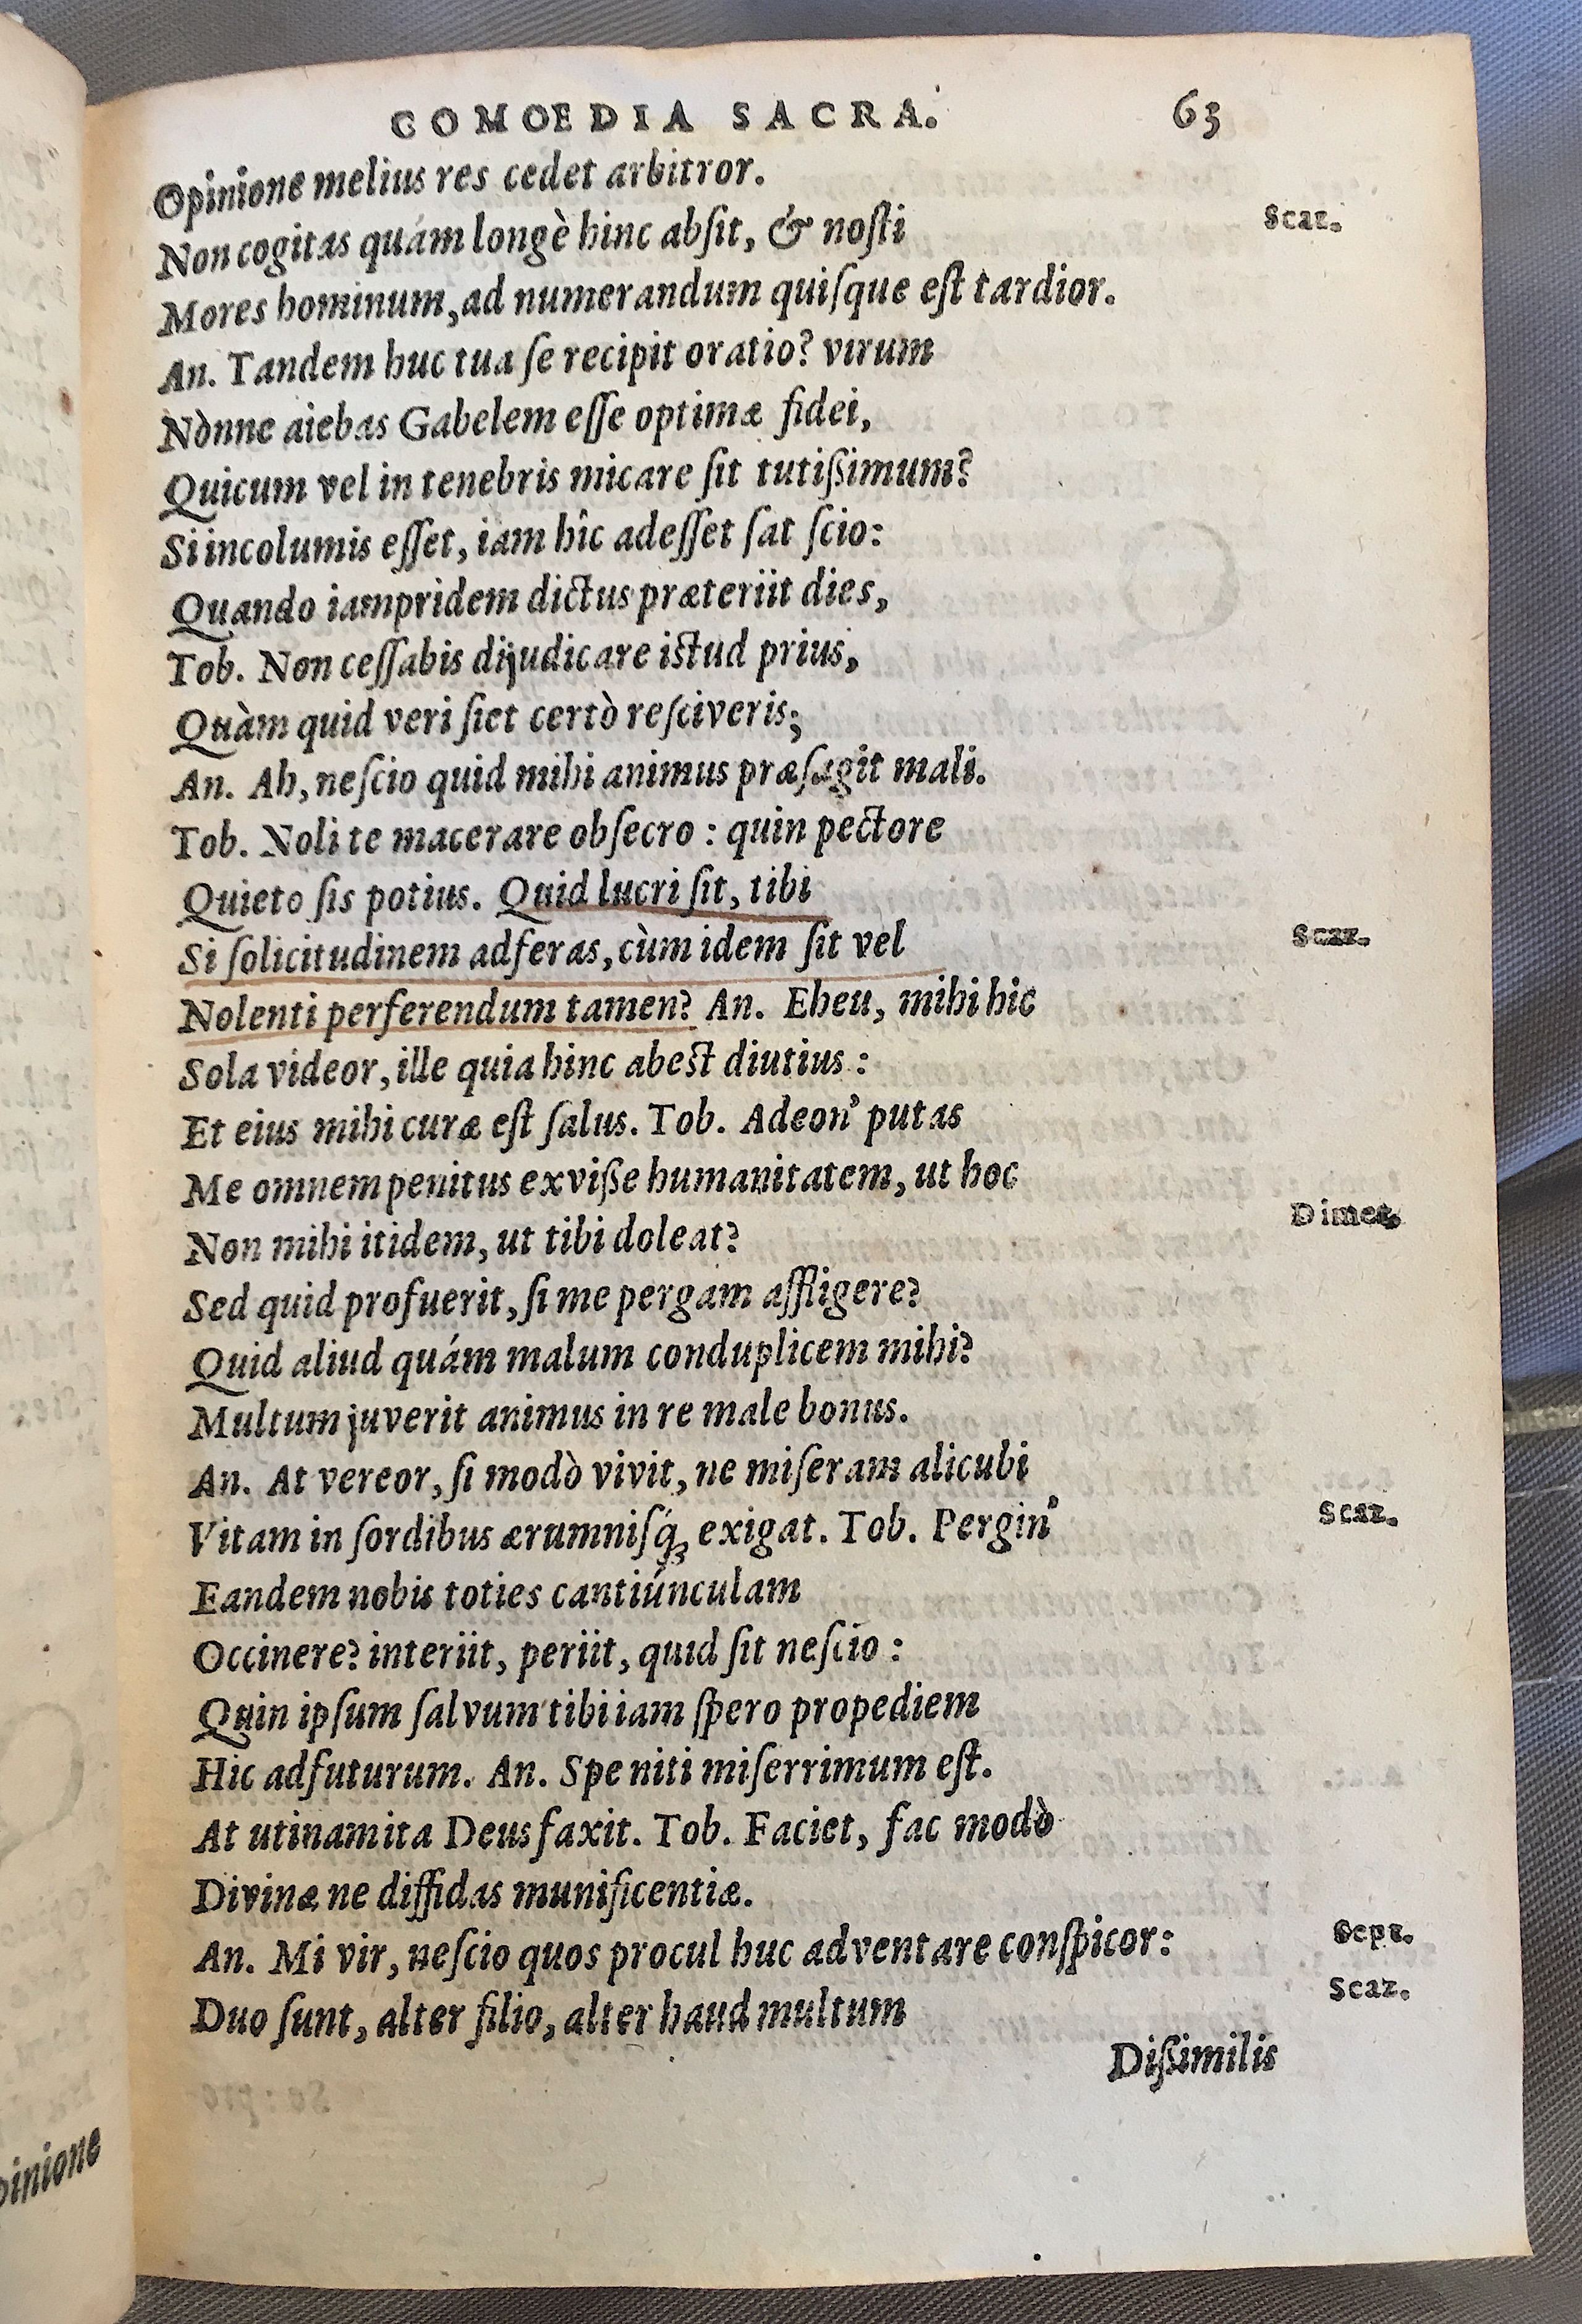 COMOEDIA SACRA. 63
Opinione melius res cedet arbitror.
Non cogitas quám longè hinc absit, & nosti Scaz.
Mores hominum, ad numerandum quisque est tardior.
An. Tandem huc tua se recipit oratio? virum
Nònne aiebas Gabelem esse optimæ fidei,
Quicum vel in tenebris micare sit tutißimum?
Si incolumis esset, iam hîc adesset sat scio:
Quando iampridem dictus præteriit dies,
Tob. Non cessabis dijudicare istud prius,
Quàm quid veri siet certò resciveris;
An. Ah, nescio quid mihi animus præsagit mali.
Tob. Noli te macerare obsecro : quin pectore
Quieto sis potius. Quid lucri sit, tibi
Si solicitudinem adferas, cùm idem sit vel Scaz.
Nolenti perferendum tamen? An. Eheu, mihi hic
Sola videor, ille quia hinc abest diutius :
Et eius mihi curæ est salus. Tob. Adeon' putas
Me omnem penitus exviße humanitatem, ut hoc
Non mihi itidem, ut tibi doleat? Dimet.
Sed quid profuerit, si me pergam affligere?
Quid aliud quám malum conduplicem mihi?
Multum juverit animus in re male bonus.
An. At vereor, si modò vivit, ne miseram alicubi
Vitam in sordibus ærumnisq́; exigat. Tob. Pergin' Scaz.
Eandem nobis toties cantiúnculam
Occinere? interiit, periit, quid sit nescio :
Quin ipsum salvum tibi iam spero propediem
Hic adfuturum. An. Spe niti miserrimum est.
At utinam ita Deus faxit. Tob. Faciet, fac modò
Divinæ ne diffidas munificentiæ.
An. Mi vir, nescio quos procul huc adventare conspicor: Sept.
Duo sunt, alter filio, alter haud multum Scaz.
Dißimilis
pinione